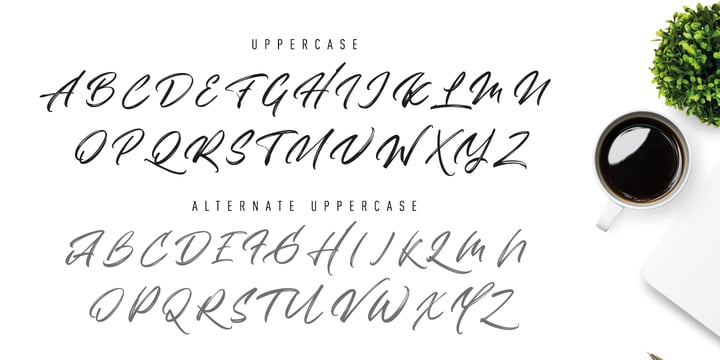 UPPERCASE
ABCDEFGHIJKLMN
OPQRSTUVWXYZ
ALTERNATE UPPERCASE
ABCDEFGHIJKLMN
OPQRSTUVWXYZ